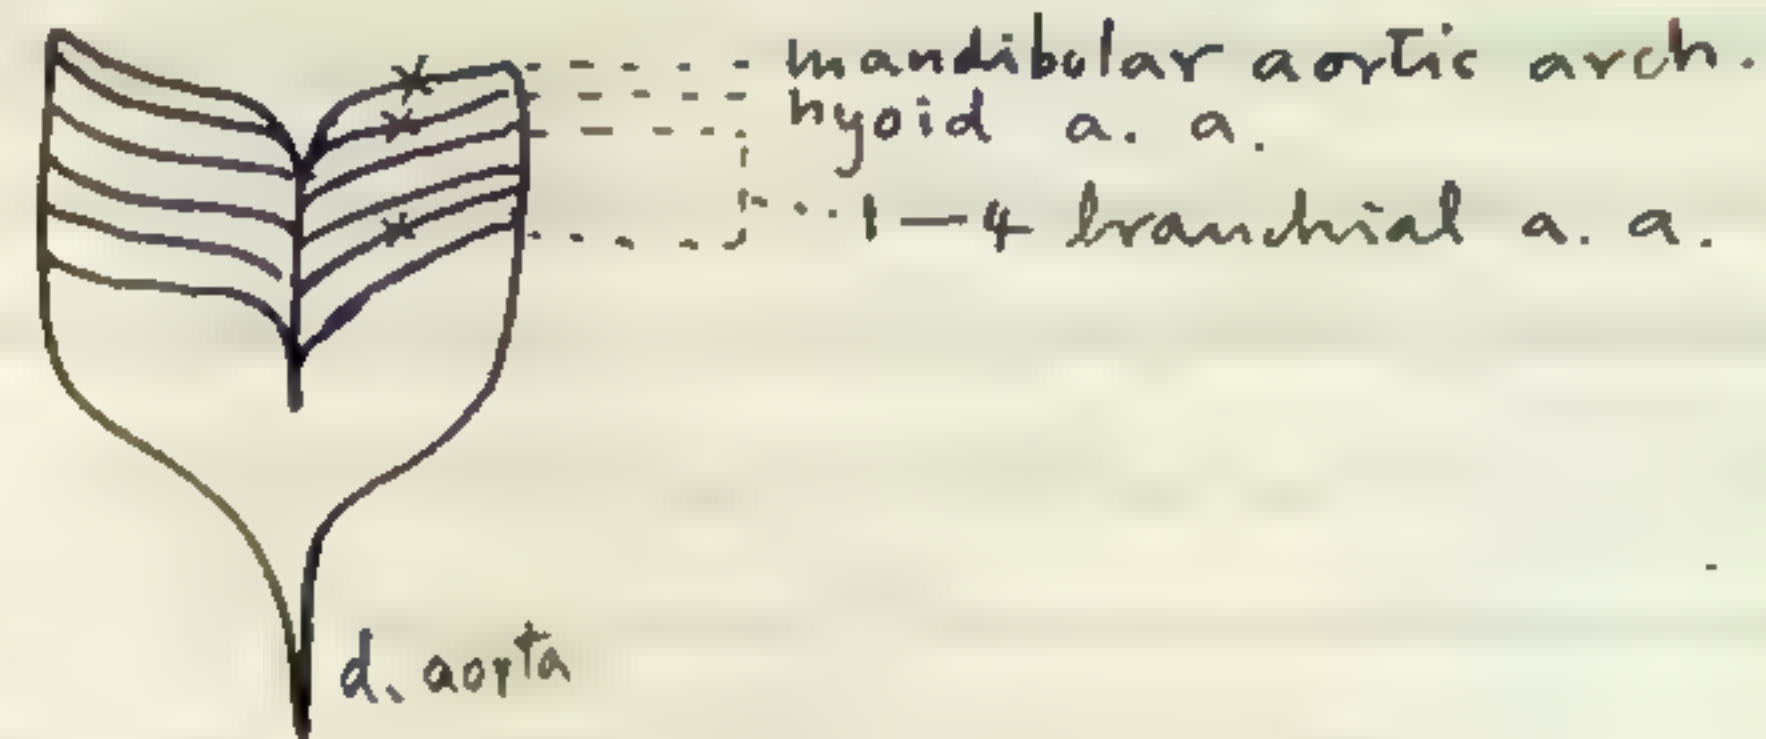 mandibular aortic arch.
hyoid a. a.
1-4 branchial a. a.
d. aorta